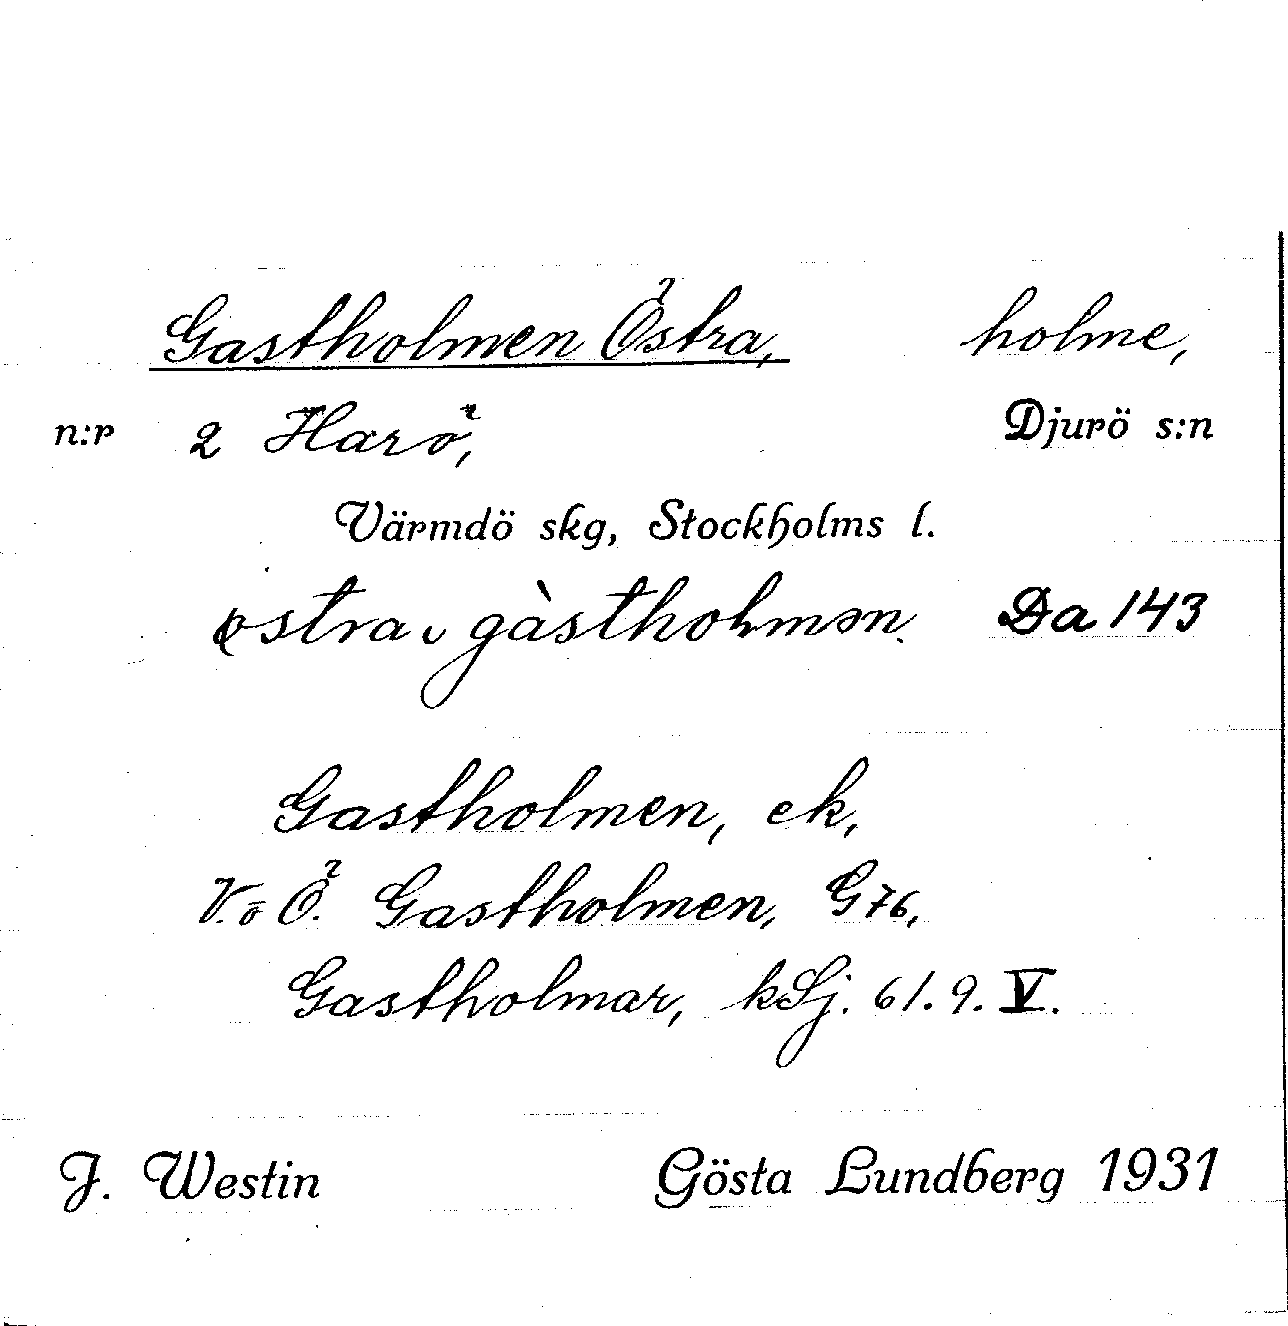 Gastholmen Östra, holme,
n:r 2 Harö, Djurö s:n
Värmdö skg, Stockholms l.
østra gàstholmən. Da 143
Gastholmen, ek,
V. o Ö. Gastholmen, G 76,
Gastholmar, kSj. 61. 9. V.
J. Westin Gösta Lundberg 1931